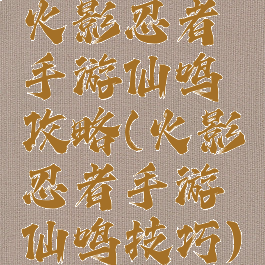 火影忍者
手游仙鸣
攻略(火影
忍者手游
仙鸣技巧)